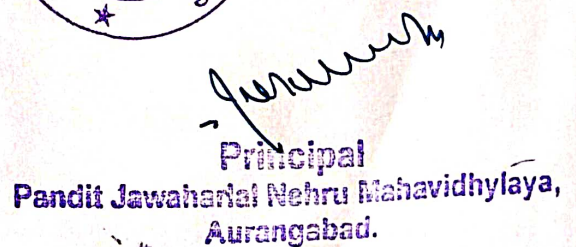 Principal
Pandit Jawaharlal Nehru Mahavidhylaya,
Aurangabad.